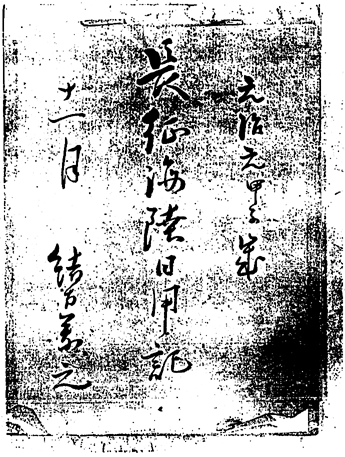 元治元甲子歳
長征海陸日用記
十一月